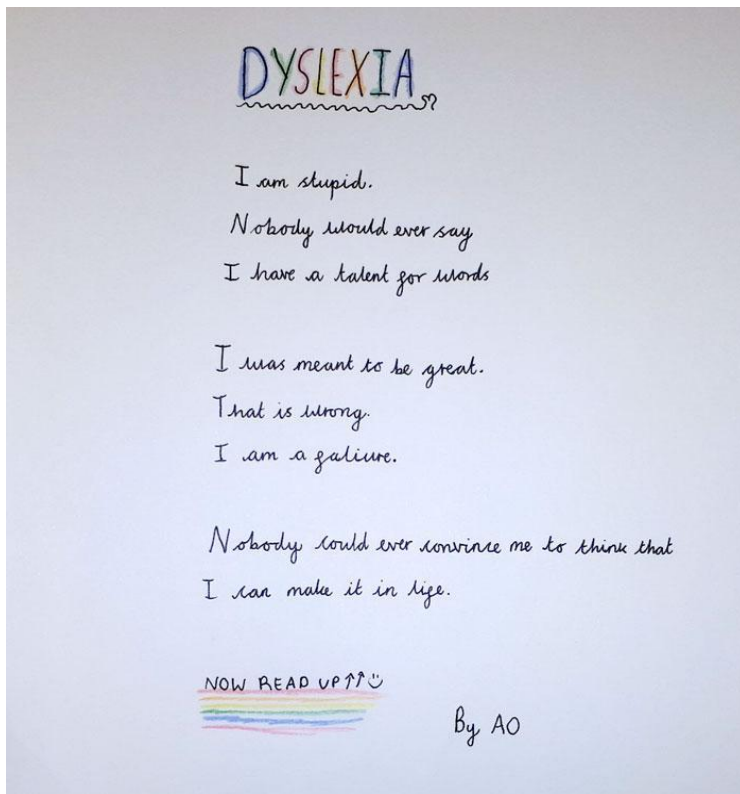 DYSLEXIA
I am stupid.
Nobody would ever say
I have a talent for words
I was meant to be great.
That is wrong.
I am a faliure.
Nobody could ever convince me to think that
I can make it in life.
NOW READ UP ↑↑ ☺
By AO